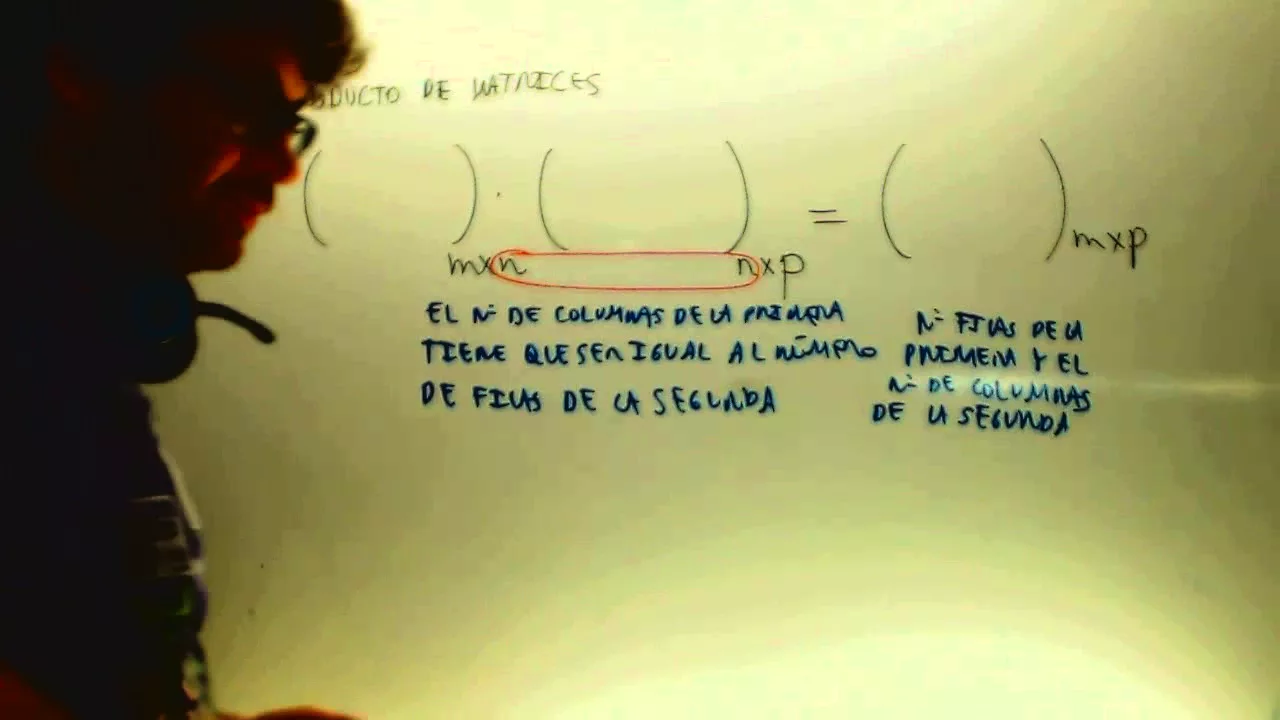 ODUCTO DE MATRICES
( ) · ( ) = ( )
m×n n×p m×p
EL Nº DE COLUMNAS DE LA PRIMERA
TIENE QUE SER IGUAL AL NÚMERO
DE FILAS DE LA SEGUNDA
Nº FILAS DE LA
PRIMERA Y EL
Nº DE COLUMNAS
DE LA SEGUNDA